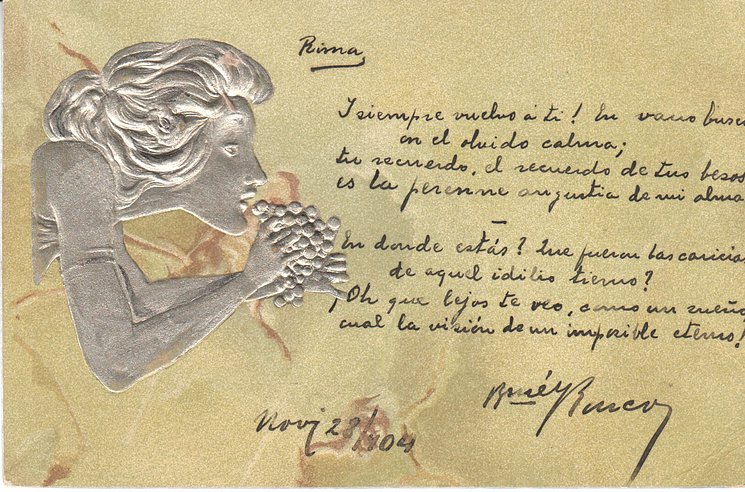 Rima
Y siempre vuelvo á ti! En vano busco
en el olvido calma;
tu recuerdo, el recuerdo de tus besos
es la perenne angustia de mi alma
En donde estás? Que fueron las caricias
de aquel idilio tierno?
¡Oh que lejos te veo, como un sueño,
cual la visión de un imposible eterno!
Novb 28/904